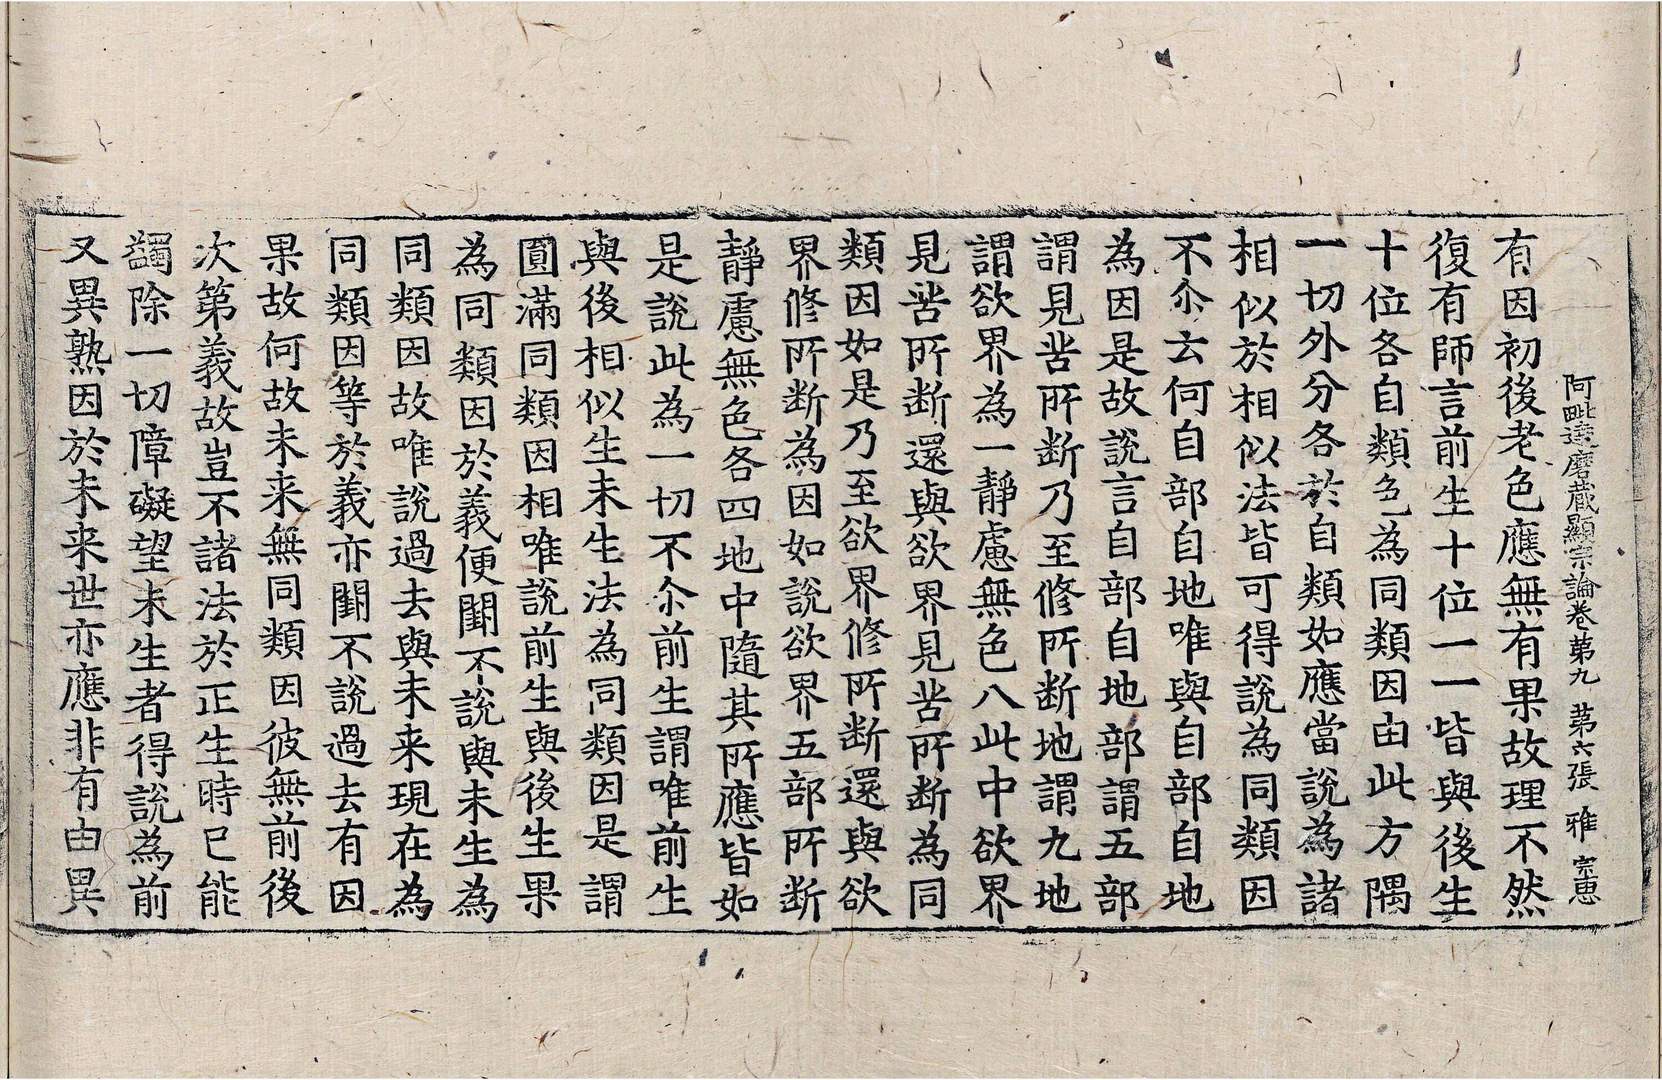 阿毗達磨藏顯宗論卷第九 第六張 雅 宗惠
有因初後老色應無有果故理不然
復有師言前生十位一一皆與後生
十位各自類色為同類因由此方隅
一切外分各於自類如應當說為諸
相似於相似法皆可得說為同類因
不尒云何自部自地唯與自部自地
為因是故說言自部自地部謂五部
謂見苦所斷乃至修所斷地謂九地
謂欲界為一靜慮無色八此中欲界
見苦所斷還與欲界見苦所斷為同
類因如是乃至欲界修所斷還與欲
界修所斷為因如說欲界五部所斷
靜慮無色各四地中隨其所應皆如
是說此為一切不尒前生謂唯前生
與後相似生未生法為同類因是謂
圓滿同類因相唯說前生與後生果
為同類因於義便闕不說與未生為
同類因故唯說過去與未来現在為
同類因等於義亦闕不說過去有因
果故何故未来無同類因彼無前後
次第義故豈不諸法於正生時已能
蠲除一切障礙望未生者得說為前
又異熟因於未来世亦應非有由異